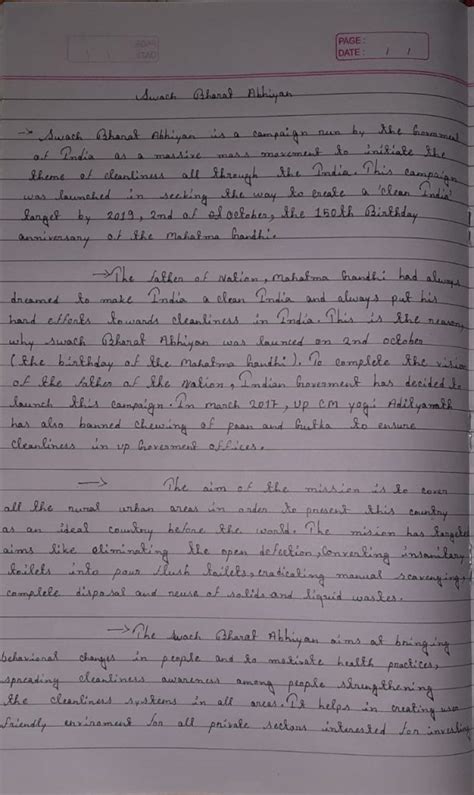 PAGE :
DATE : / /
Swach Bharat Abhiyan
→ Swach Bharat Abhiyan is a campaign run by the Goverment
of India as a massive mass movement to initiate the
theme of cleanliness all through the India. This campaign
was launched in seeking the way to create a 'clean India'
target by 2019, 2nd of october, the 150th Birthday
anniversary of the Mahatma Gandhi.
→ The father of Nation, Mahatma Gandhi had always
dreamed to make India a clean India and always put his
hard efforts towards cleanliness in India. This is the reason
why swach Bharat Abhiyan was launced on 2nd october
(the birthday of the Mahatma Gandhi). To complete the vision
of the father of the Nation, Indian Goverment has decided to
launch this campaign. In march 2017, UP CM yogi Adityanath
has also banned chewing of paan and Gutka to ensure
cleanliness in up Goverment offices.
→ The aim of the mission is to cover
all the rural urban areas in order to present this country
as an ideal country before the world. The mision has targeted
aims like eliminating the open defection, Converting insanitary
toilets into pour flush toilets, eradicating manual scavenging,
complete disposal and reuse of solids and liquid wastes.
→ The swach Bharat Abhiyan aims at bringing
behavioral changes in people and to motivate health practices,
spreading cleanliness awareness among people strengthening
the cleanliness systems in all areas. It helps in creating user
friendly enviroment for all private sectors interested for investing